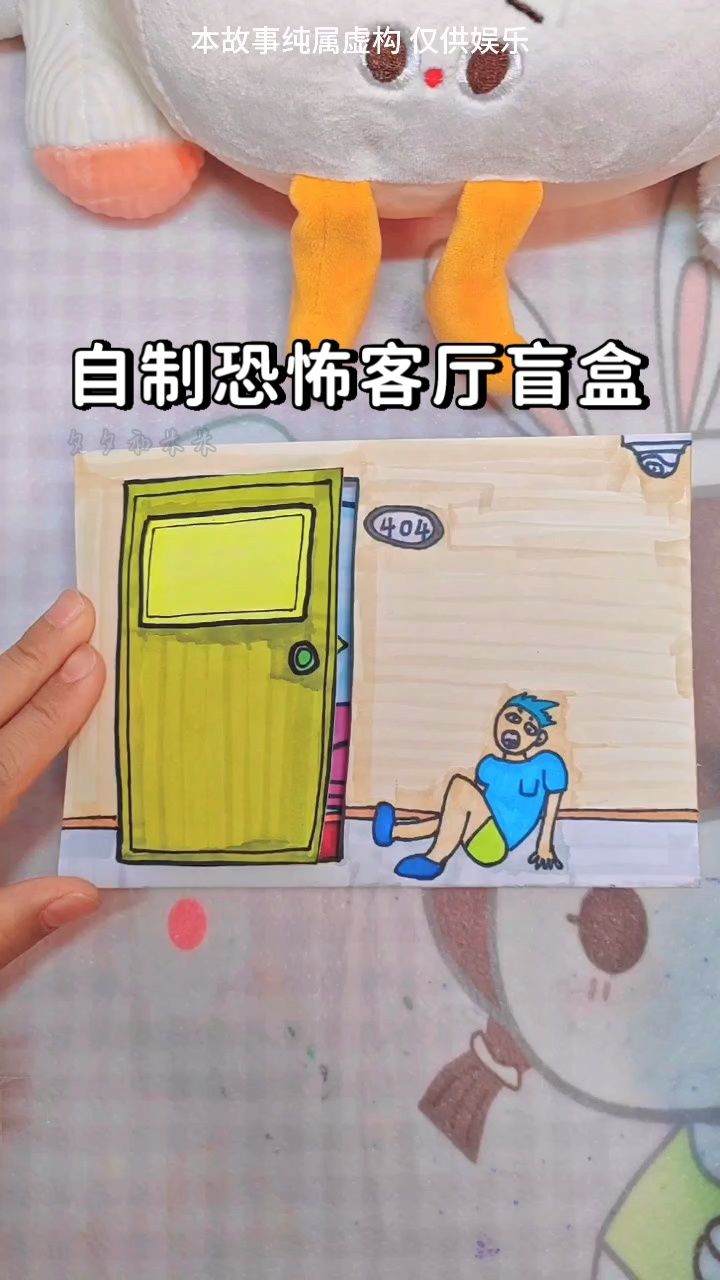 本故事纯属虚构 仅供娱乐
自制恐怖客厅盲盒
夕夕和朱朱
404